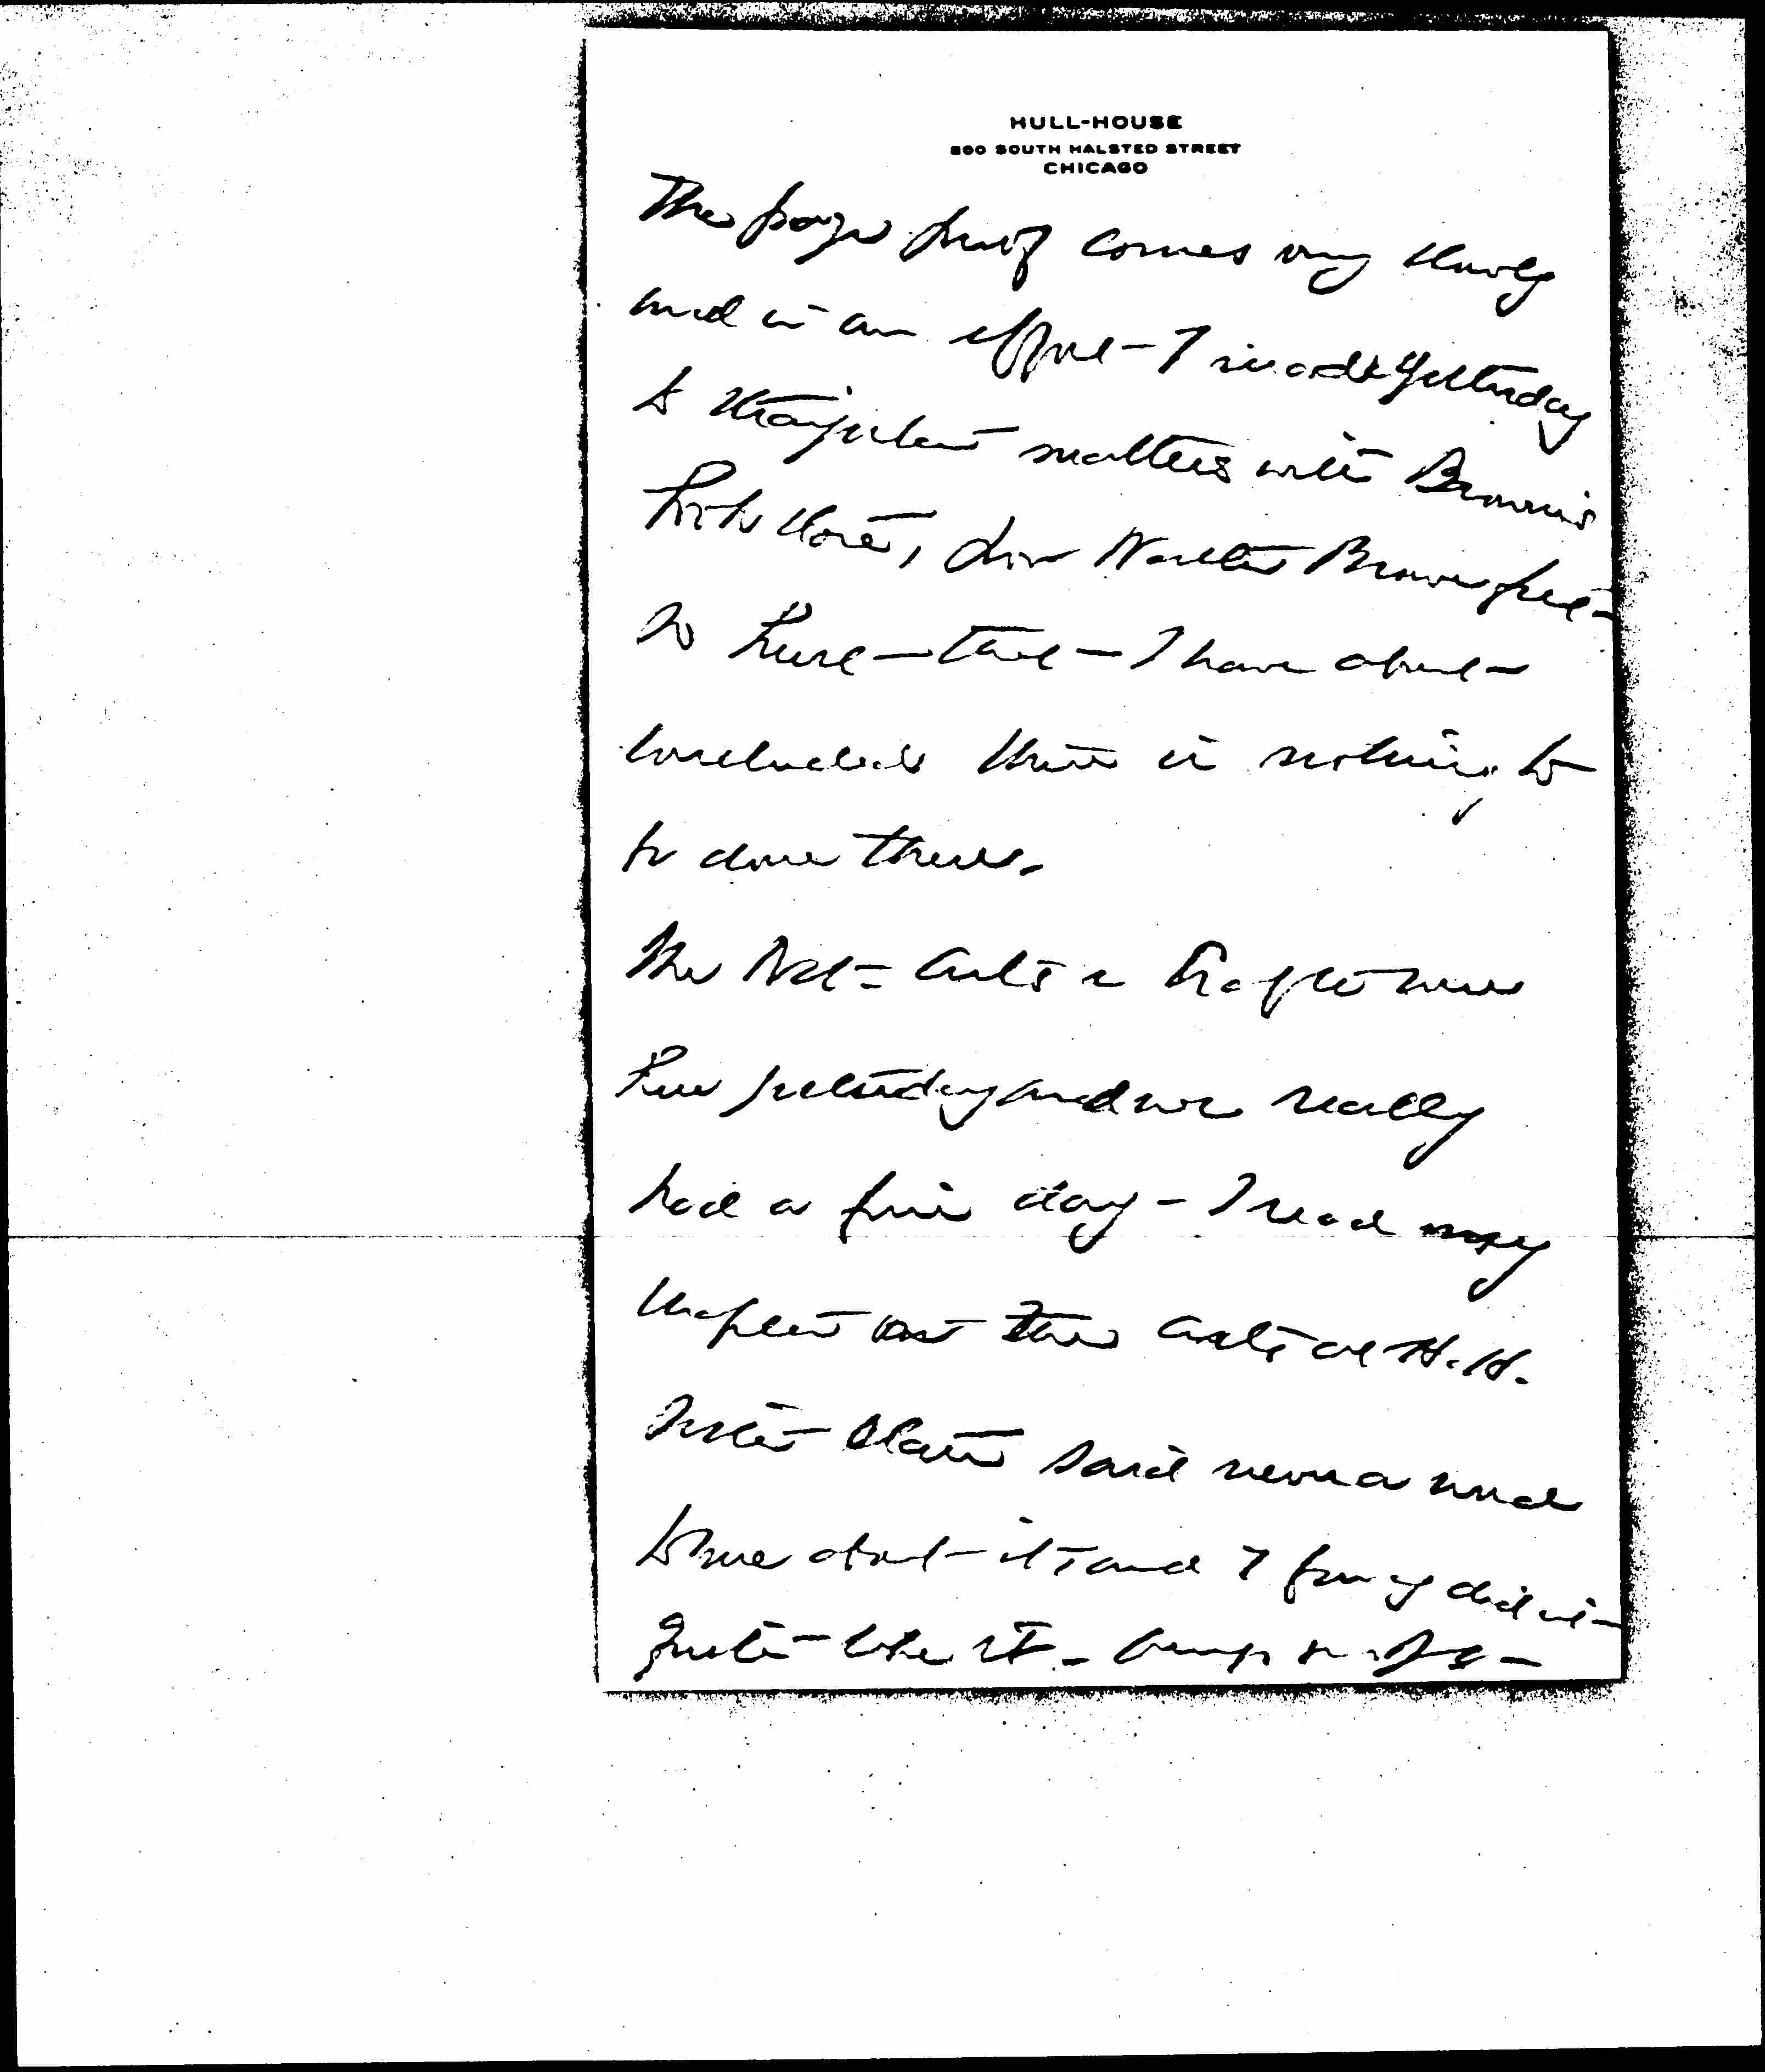 HULL-HOUSE
800 SOUTH HALSTED STREET
CHICAGO
The page proof comes very slowly
and in an effort I made yesterday
to straighten matters with Browne's
book store, Lin Walter Browne felt
so hurt that I have about
concluded there is nothing to
be done there.
The Nat = Arts & Crafts were
here yesterday and we really
had a fine day - I read my
chapter on the Arts at H.H.
Sister Starr said never a word
to me about it and I fancy did not
quite like it -